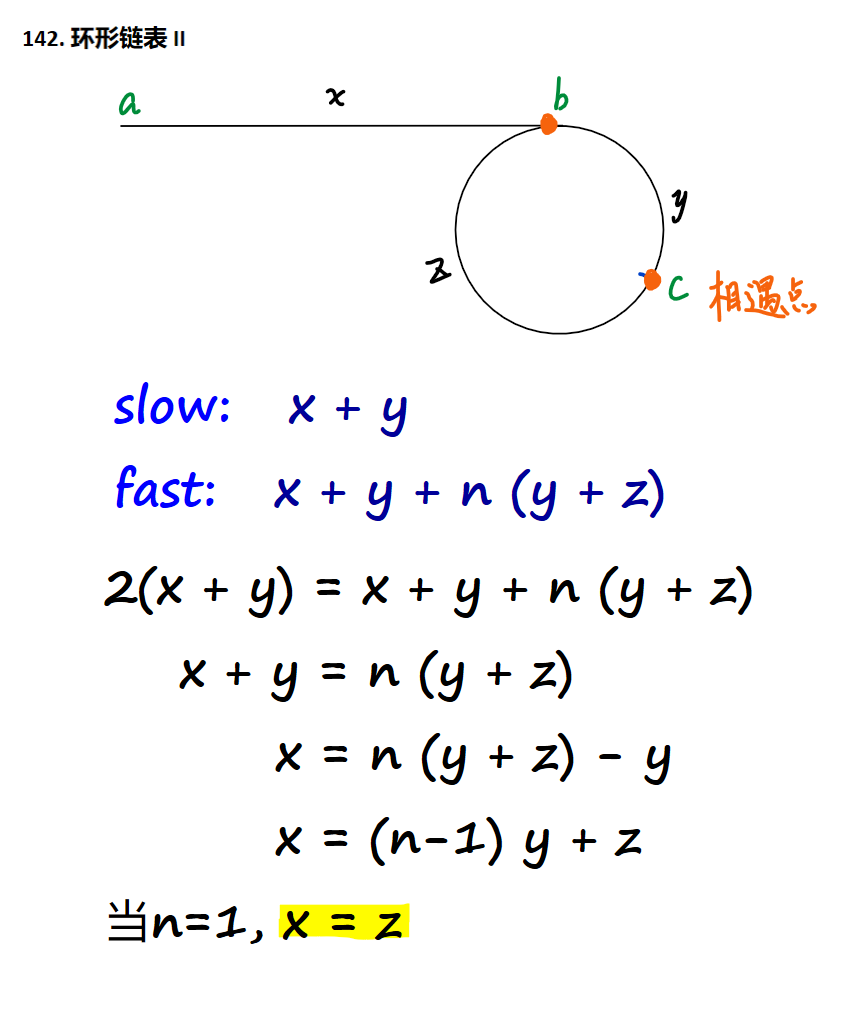 142. 环形链表 II
a
x
b
y
z
c 相遇点
slow: x + y
fast: x + y + n (y + z)
2(x + y) = x + y + n (y + z)
x + y = n (y + z)
x = n (y + z) - y
x = (n-1) y + z
当n=1, x = z